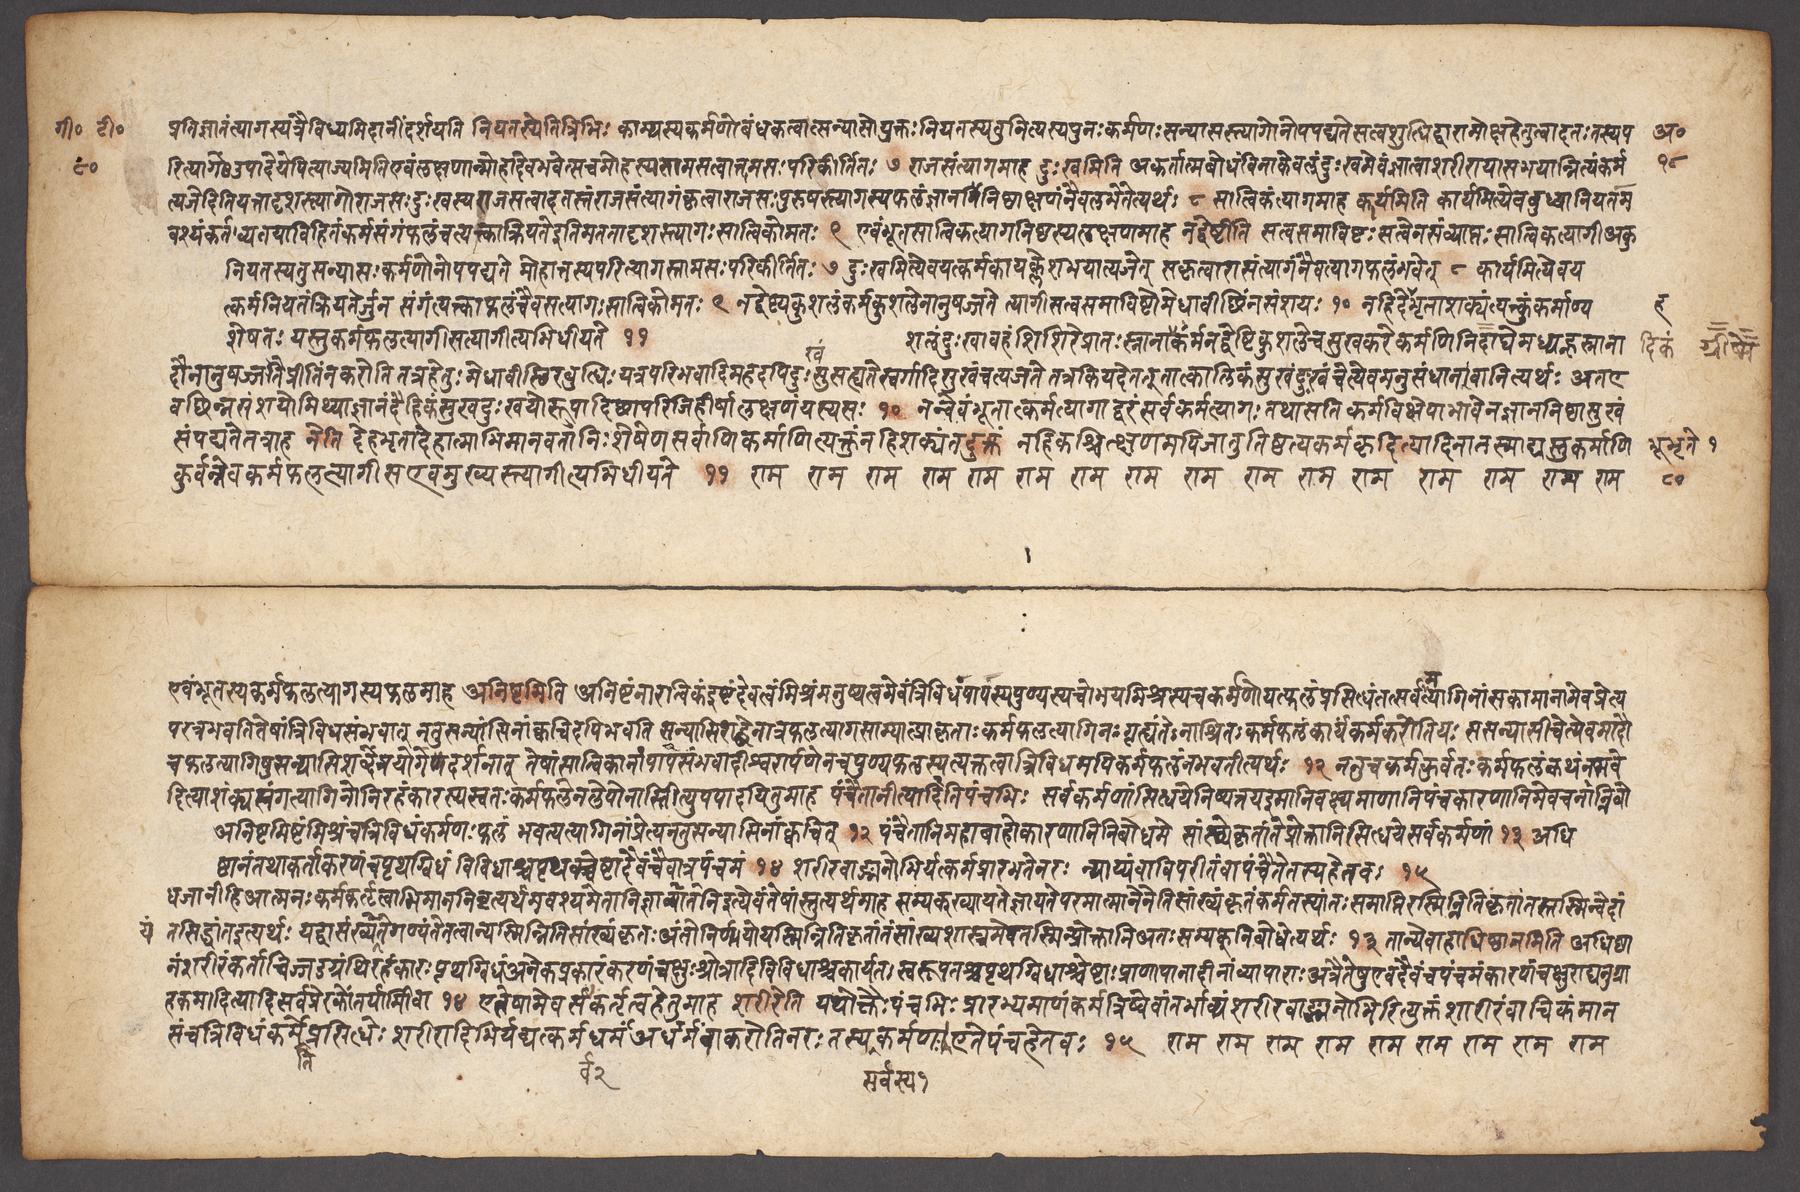 गी० टी०
९०
प्रतिज्ञातंत्यागस्यत्रैविध्यमिदानींदर्शयति नियतस्येतित्रिभिः काम्यस्यकर्मणोबंधकत्वात्संन्यासोयुक्तः नियतस्यतुनित्यस्यपुनःकर्मणःसन्यासस्त्यागोनोपपद्यतेसत्वशुद्धिद्वारामोक्षहेतुत्वादतःतस्यप
अ०
१८
रित्यागेउपादेयेपित्याज्यमितिएवंलक्षणान्मोहादेवभवेत्सचमोहस्यतामसत्वात्तामसःपरिकीर्तितः ७ राजसंत्यागमाह दुःखमिति अकर्तात्मबोधंविनाकेवलंदुःखमेवंज्ञात्वाशरीरायासभयान्नित्यंकर्म
त्यजेदितियत्तादृशस्त्यागोराजसःदुःखस्यराजसत्वादतस्तंराजसंत्यागंकृत्वाराजसःपुरुषस्त्यागस्यफलंज्ञाननिष्ठालक्षणंनैवलभेतेत्यर्थः ८ सात्विकंत्यागमाह कार्यमिति कार्यमित्येवबुध्यानियतम
वश्यंकर्तव्यतयाविहितंकर्मसंगंफलंचत्यक्त्वाक्रियतेइतिमततादृशस्त्यागःसात्विकोमतः ९ एवंभूतसात्विकत्यागनिष्ठस्यलक्षणमाह नद्वेष्टीति सत्वसमाविष्टःसत्वेनसंव्याप्तःसात्विकत्यागीअकु
नियतस्यतुसन्यासःकर्मणोनोपपद्यते मोहात्तस्यपरित्यागस्तामसःपरिकीर्तितः ७ दुःखमित्येवयत्कर्मकायक्लेशभयात्यजेत् सकृत्वाराजसंत्यागंनैवत्यागफलंलभेत् ८ कार्यमित्येवय
त्कर्मनियतंक्रियतेर्जुन संगंत्यक्त्वाफलंचैवसत्यागःसात्विकोमतः ९ नद्वेष्ट्यकुशलंकर्मकुशलेनानुषज्जते त्यागीसत्वसमाविष्टोमेधावीछिन्नसंशयः १० नहिदेहभृताशक्यंत्यक्तुंकर्माण्य
ह
शेषतः यस्तुकर्मफलत्यागीसत्यागीत्यभिधीयते ११ शलंदुःखावहंशिशिरेप्रातःस्नानाकंर्मनद्वेष्टिकुशलेचसुखकरेकर्मणिनिदाघेमध्यह्नस्नाना
दिकं ग्रीष्मे
दौनानुषज्जतेप्रीतिंनकरोति तत्रहेतुःमेधावीस्थिरबुद्धिःयत्रपरिभवादिमहदपिदुःसुसह्यतेस्वर्गादिसुखंचत्यजते तत्रकियदेतत्तात्कालिकंसुखंदुःखंचेत्येवमनुसंधानवानित्यर्थः अतए
खं
वछिन्नसंशयोमिथ्याज्ञानंदैहिकंसुखदुःखयोरुपादित्सापरिजिहीर्षालक्षणंयस्यसः १० नन्वेवंभूतात्कर्मत्यागाद्वरंसर्वकर्मत्यागःतथासति कर्मविक्षेपाभावेनज्ञाननिष्ठासुखं
संपद्यतेतत्राह नेति देहभृतादेहात्माभिमानवतानिःशेषेणसर्वाणिकर्माणित्यक्तुंनहिशक्यंतदुक्तं नहिकश्चित्क्षणमपिजातुतिष्ठत्यकर्मकृदित्यादिनातस्माद्यस्तुकर्माणि
कुर्वन्नेवकर्मफलत्यागीसएवमुख्यस्त्यागीत्यभिधीयते ११ राम राम राम राम राम राम राम राम राम राम राम राम राम राम राम राम
९०
एवंभूतस्यकर्मफलत्यागस्यफलमाह अनिष्टमिति अनिष्टंनारकित्वंइष्टंदेवत्वंमिश्रंमनुष्यत्वमेवंत्रिविधंपापस्यपुण्यस्यचोभयमिश्रस्यचकर्मणोयत्फलंप्रसिद्धंतत्सर्वमत्यागिनांसकामानामेवप्रेत्य
परत्रभवतितेषांत्रिविधसंभवात् नतुसन्यासिनांक्वचिदपिभवति सन्यासिशब्देनात्रफलत्यागसाम्यात्प्राकृताःकर्मफलत्यागिनःगृह्यंतेअनाश्रितःकर्मफलंकार्यंकर्मकरोतियः ससन्यासीचेत्येवमादौ
चफलत्यागिषुसन्यासिशब्दप्रयोगदर्शनात् तेषांसात्विकानांपापसंभवादीश्वरार्पणेनचपुण्यफलस्यत्यक्तत्वात्त्रिविधमपिकर्मफलंनभवतीत्यर्थः १२ ननुचकर्मकुर्वतःकर्मफलंकथंनभवे
दित्याशंक्यसंगत्यागिनोनिरहंकारस्यस्वतःकर्मफलेनलेपोनास्तीत्युपपादयितुमाह पंचैतानीत्यादिनेतिपंचभिः सर्वकर्मणांसिध्ययेनिष्पत्तयइमानिवक्ष्यमाणानिपंचकारणानिमेवचनान्निबो
अनिष्टमिष्टंमिश्रंचत्रिविधंकर्मणःफलं भवत्यत्यागिनांप्रेत्यनतुसन्यासिनांक्वचित् १२ पंचैतानिमहाबाहोकारणानिनिबोधमे सांख्येकृतांतेप्रोक्तानिसिध्धयेसर्वकर्मणां १३ अधि
ष्ठानंतथाकर्ताकरणंचपृथग्विधं विविधाश्चपृथक्चेष्टादैवंचैवात्रपंचमं १४ शरीरवाङ्मनोभिर्यत्कर्मप्रारभतेनरः न्याय्यंवाविपरीतंवापंचैतेतस्यहेतवः १५
धजानीहिआत्मनःकर्मकर्तृत्वाभिमाननिवृत्यर्थमवश्यमेतानिज्ञातव्यानिइत्येवंतेषांस्तुत्यर्थमाह सम्यक्ख्यायतेज्ञायतेपरमात्मानेनेतिसांख्यंकृतंकर्मतस्यांतःसमाप्तिरस्मिन्नितिकृतांतस्तस्मिन्वेदां
यं
तसिद्धांतइत्यर्थः यद्वासंख्यंतेगण्यंतेतत्वान्यस्मिन्नितिसांख्यंकृतःअंतोनिर्णयोयस्मिन्नितिकृतांतंसांख्यशास्त्रमेवतस्मिन्प्रोक्तानिअतःसम्यक्निबोधेत्यर्थः १३ तान्येवाहाधिष्ठानमिति अधिष्ठा
नंशरीरंकर्ताचिज्जडग्रंथिरहंकारःपृथग्विधंअनेकप्रकारंकरणंचक्षुःश्रोत्रादिविविधाश्चकार्यतःस्वरूपतश्चपृथग्विधाश्चेष्टाःप्राणापानादीनांव्यापाराःअत्रैतेषुएवदैवंचपंचमंकारणंचक्षुराद्यनुग्रा
हकमादित्यादिसर्वप्रेरकोंतर्यामीवा १४ एतेषामेवसर्वकर्तृत्वहेतुमाह शरीरेति यथोक्तैःपंचभिःप्रारभ्यमाणंकर्मत्रिष्वेवांतर्भाव्यंशरीरवाङ्मनोभिरित्युक्तंशारीरंवाचिकंमान
संचत्रिविधंकर्मेप्रसिधेः शरीरादिभिर्यद्यत्कर्मधर्मंअधर्मंवाकरोतिनरःतस्यकर्मणःएतेपंचहेतवः १५ राम राम राम राम राम राम राम राम राम
ति
र्व२
सर्वस्य१